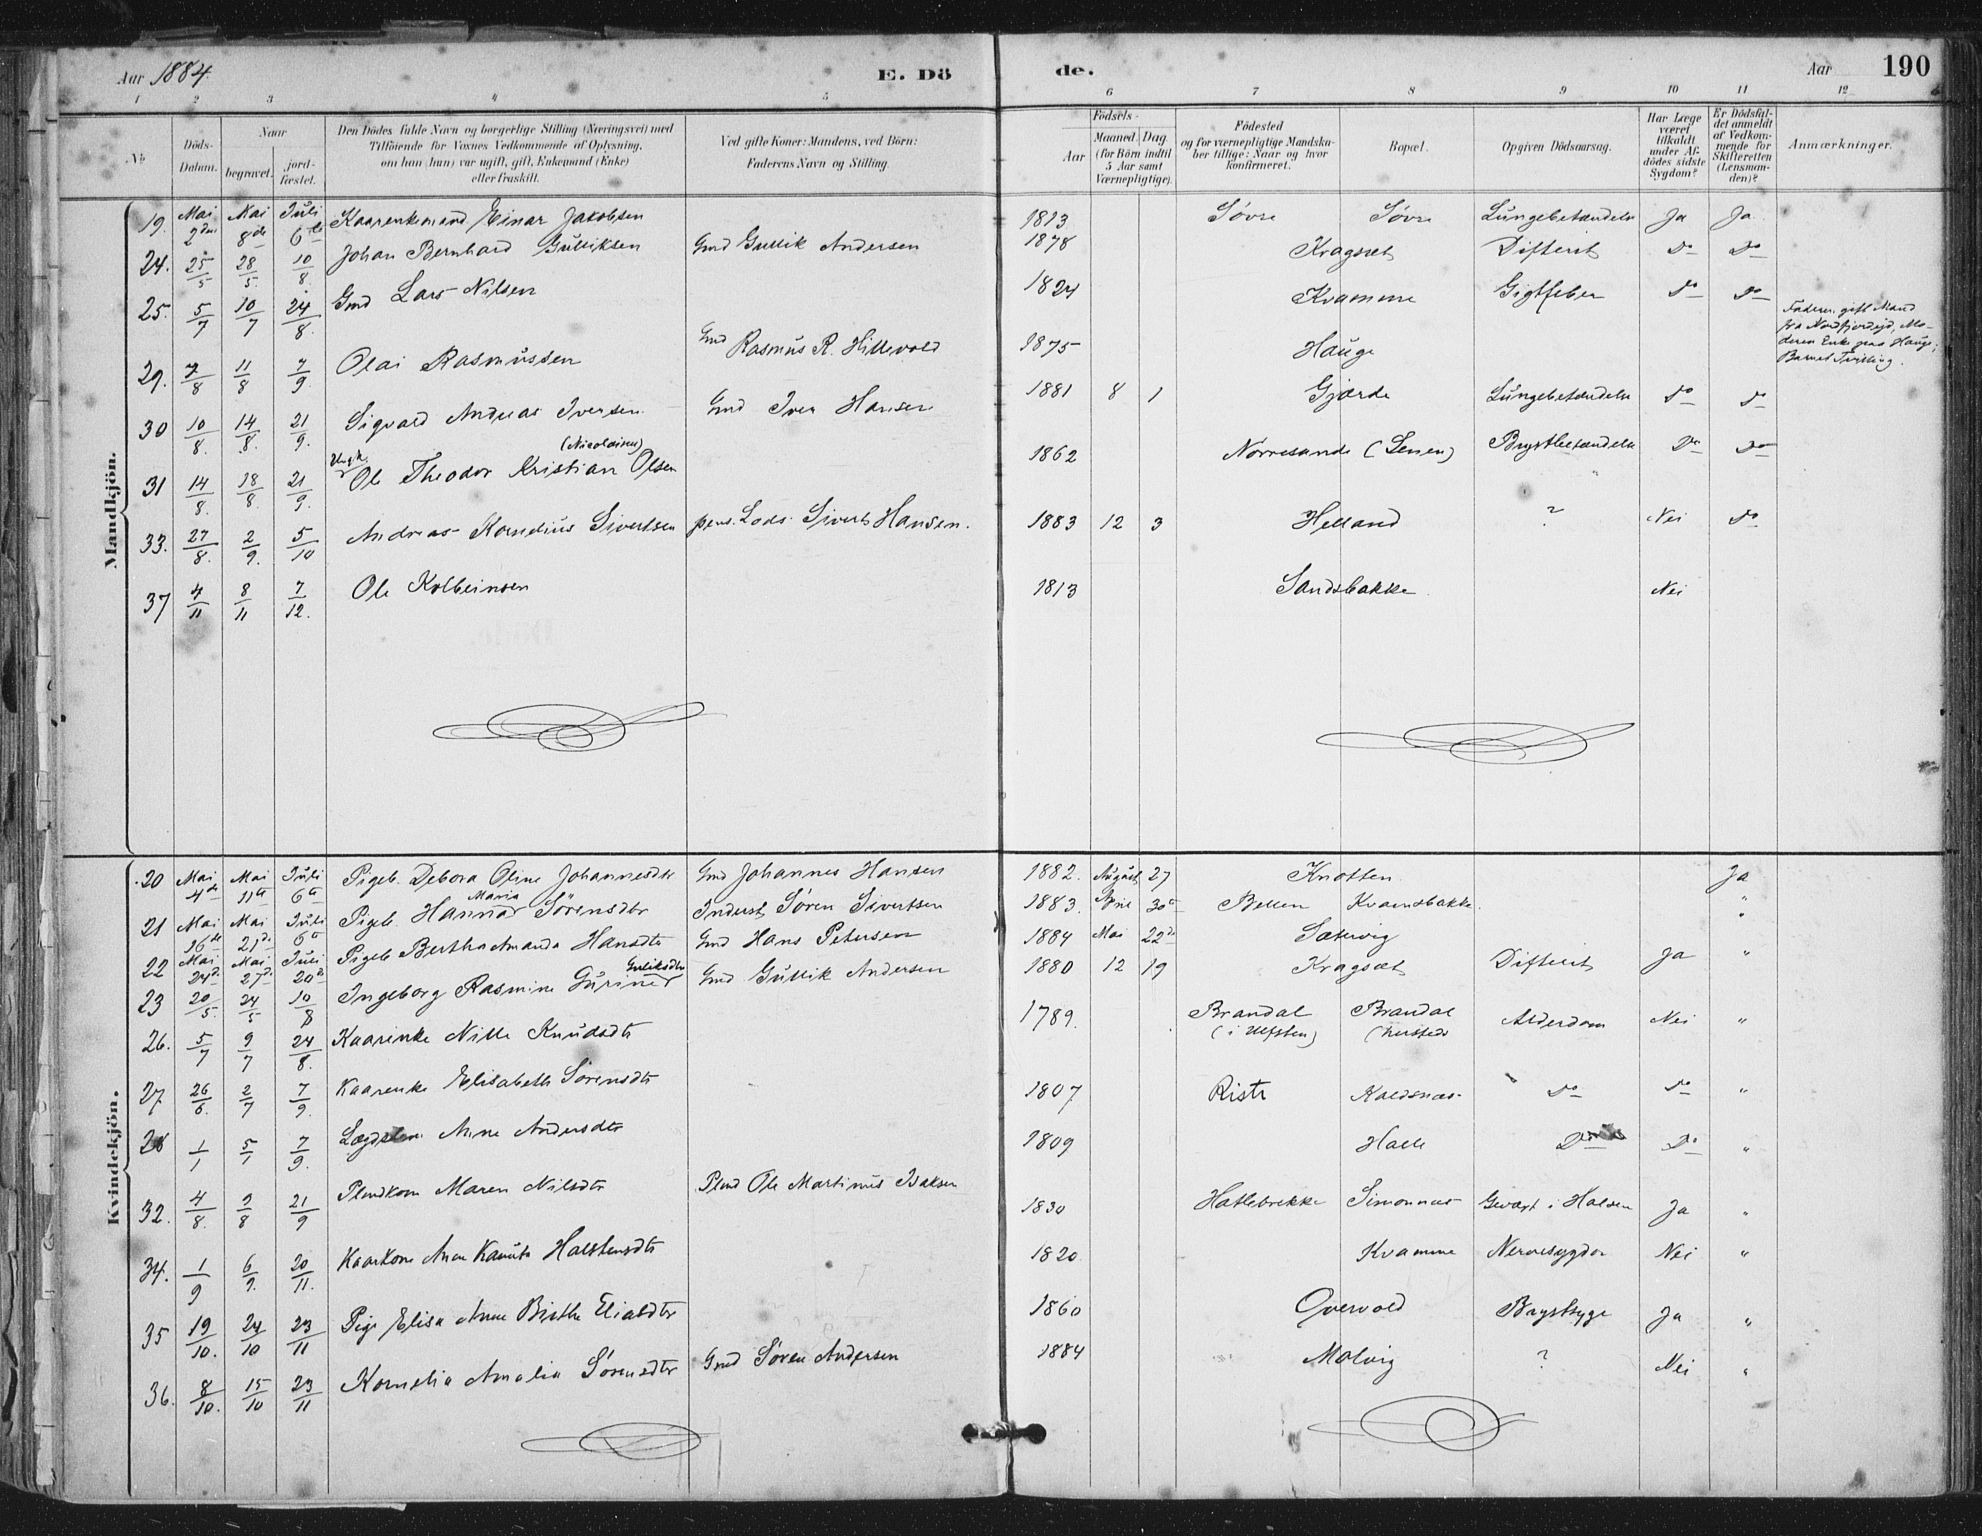 Aar 1884.
E. Döde.
Aar
190
1 2 3 4 5 6 7 8 9 10 11 12
№
Döds-Datum.
Naar
begravet.
jord-fæstet.
Den Dödes fulde Navn og borgerlige Stilling (Næringsvei) med
Tilföiende for Voxnes Vedkommende af Oplysning,
om han (hun) var ugift, gift, Enkemand (Enke)
eller fraskilt.
Ved gifte Koner: Mandens, ved Börn:
Faderens Navn og Stilling.
Födsels-
Aar
Maaned
Dag
(for Börn indtil
5 Aar samt
Værnepligtige).
Födested
og for værnepligtige Mandska-
ber tillige: Naar og hvor
konfirmeret.
Bopæl.
Opgiven Dödsaarsag.
Har Læge
været
tilkaldt
under Af-
dödes sidste
Sygdom?
Er Dödsfal-
det anmeldt
af Vedkom-
mende for
Skifteretten
(Lensman-
den)?
Anmærkninger.
Mandkjön.
19. Mai 2den Mai 8de Juli 6te Kaarenkemand Einar Jakobsen 1813 Søvre Søvre Lungebetændelse Ja Ja
24. 25/5 28/5 10/8 Johan Bernhard Gulliksen Gmd Gullik Andersen 1878 Kragset Difterit Do Do
25. 5/7 10/7 24/8. Gmd Lars Nilsen 1824 Kvamme Gigtfeber Do Do
29. 7/8 11/8 7/9. Olai Rasmussen Gmd Rasmus R. Hillevold 1875 Hauge Faderen gift Mand
fra Nordfjordeid, Mo-
deren Enke paa Hauge;
Barnet Tvilling.
30 10/8. 14/8. 21/9. Sigvald Andreas Iversen Gmd Iver Hansen 1881 8 1 Gjærde Lungebetændelse Do Do
31 14/8. 18/8. 21/9. Ungk. Ole Theodor Kristian (Nicolaisen) Olsen 1862 Norresande (Leien) Brystbetændelse Do Do
33. 27/8. 2/9. 5/10 Andreas Kornelius Sivertsen pens. Lods Sivert Hansen. 1883 12 3 Helland ? Nei Do
37 4/11 8/11 7/12. Ole Kolbeinsen 1813 Sandsbakke. Nei
Kvindekjön.
20 Mai 4de Mai 11te Juli 6te Pigeb. Debora Oline Johannesdtr Gmd Johannes Hansen 1882. August 27 Knotten. Ja
21 Mai 16de Mai 21de Juli 6te Pigeb. Hanna Maria Sørensdtr Inderst Søren Sivertsen 1883. April 30te Kvamsbakke. "
22 Mai 24de Mai 27de Juli 20de Pigeb Bertha Amanda Hansdtr Gmd Hans Petersen 1884 Mai 22de Sætervig "
23 20/5. 24/5 10/8 Ingeborg Rasmine Guliksdtr Gmd Gullik Andersen 1880 12 19 Kragset Difterit Ja "
26. 5/7 9/7 24/8. Kaarenke Nille Knudsdtr 1789. Brandal (i Ulfsten) Brandal Alderdom Nei "
27. 26/6. 2/7 7/9. Kaarenke Elisabeth Sørensdtr 1807 Riste Koldsnæs Do Do "
28 1/1 5/1 7/9. Anne Andersdtr 1809 Halle Do Do "
32. 4/8. 9/8 21/9 Maren Nilsdtr Ole Martinus Isaksen 1830 Hatlebrekke Simonnæs Gevæxt i Halsen Ja "
34. 1/9 6/9. 20/11. Kaarkone Ane Hallstensdtr 1820. Kvamme Nervesygdom Nei "
35 19/10. 24/10 23/11 Pige Elisa Anne Birthe Eliasdtr 1860 Overvold Brystsyge Ja "
36. 8/10. 15/10 23/11 Kornelia Amalia Sørensdtr Gmd Søren Andersen 1884 Molvig ? Nei "